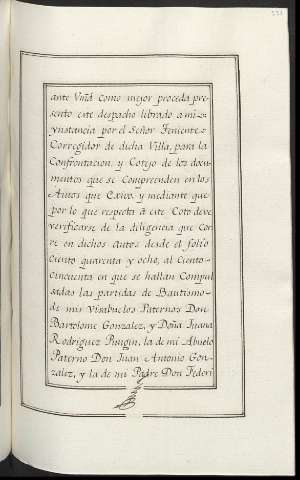 ante Vmd como mejor proceda pre-
sento este despacho librado a mi
ynstancia por el Señor Teniente
Corregidor de dicha Villa, para la
Confrontacion, y Cotejo de los docu-
mentos que se Comprenden en los
Autos que Exivo, y mediante que
por lo que respecta â este Coto deve
verificarse de la diligencia que Cor-
re en dichos autos desde el folio
ciento quarenta y ocho, al Ciento
Cincuenta en que se hallan Compul
sadas las partidas de Bautismo
de mis Visabuelos Paternos Don
Bartolome Gonzalez, y Doña Juana
Rodriguez Pungin, la de mi Abuelo
Paterno Don Juan Antonio Gon-
zalez, y la de mi Padre Don Federi